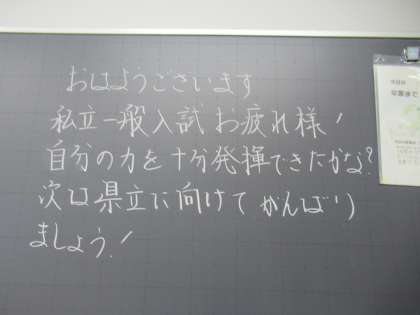 おはようございます
私立一般入試お疲れ様!
自分の力を十分発揮できたかな?
次は県立に向けてがんばり
ましょう!
卒業まで